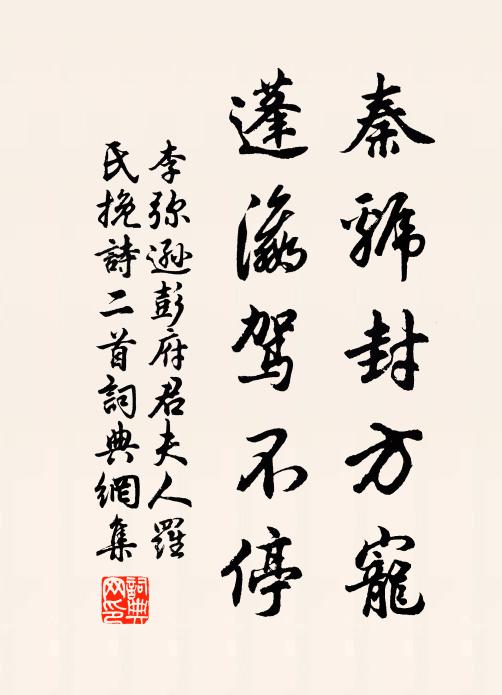 秦虢封方寵
蓬瀛駕不停
李弥遜彭府君夫人羅
氏挽詩二首詞典網集
詞典
网印